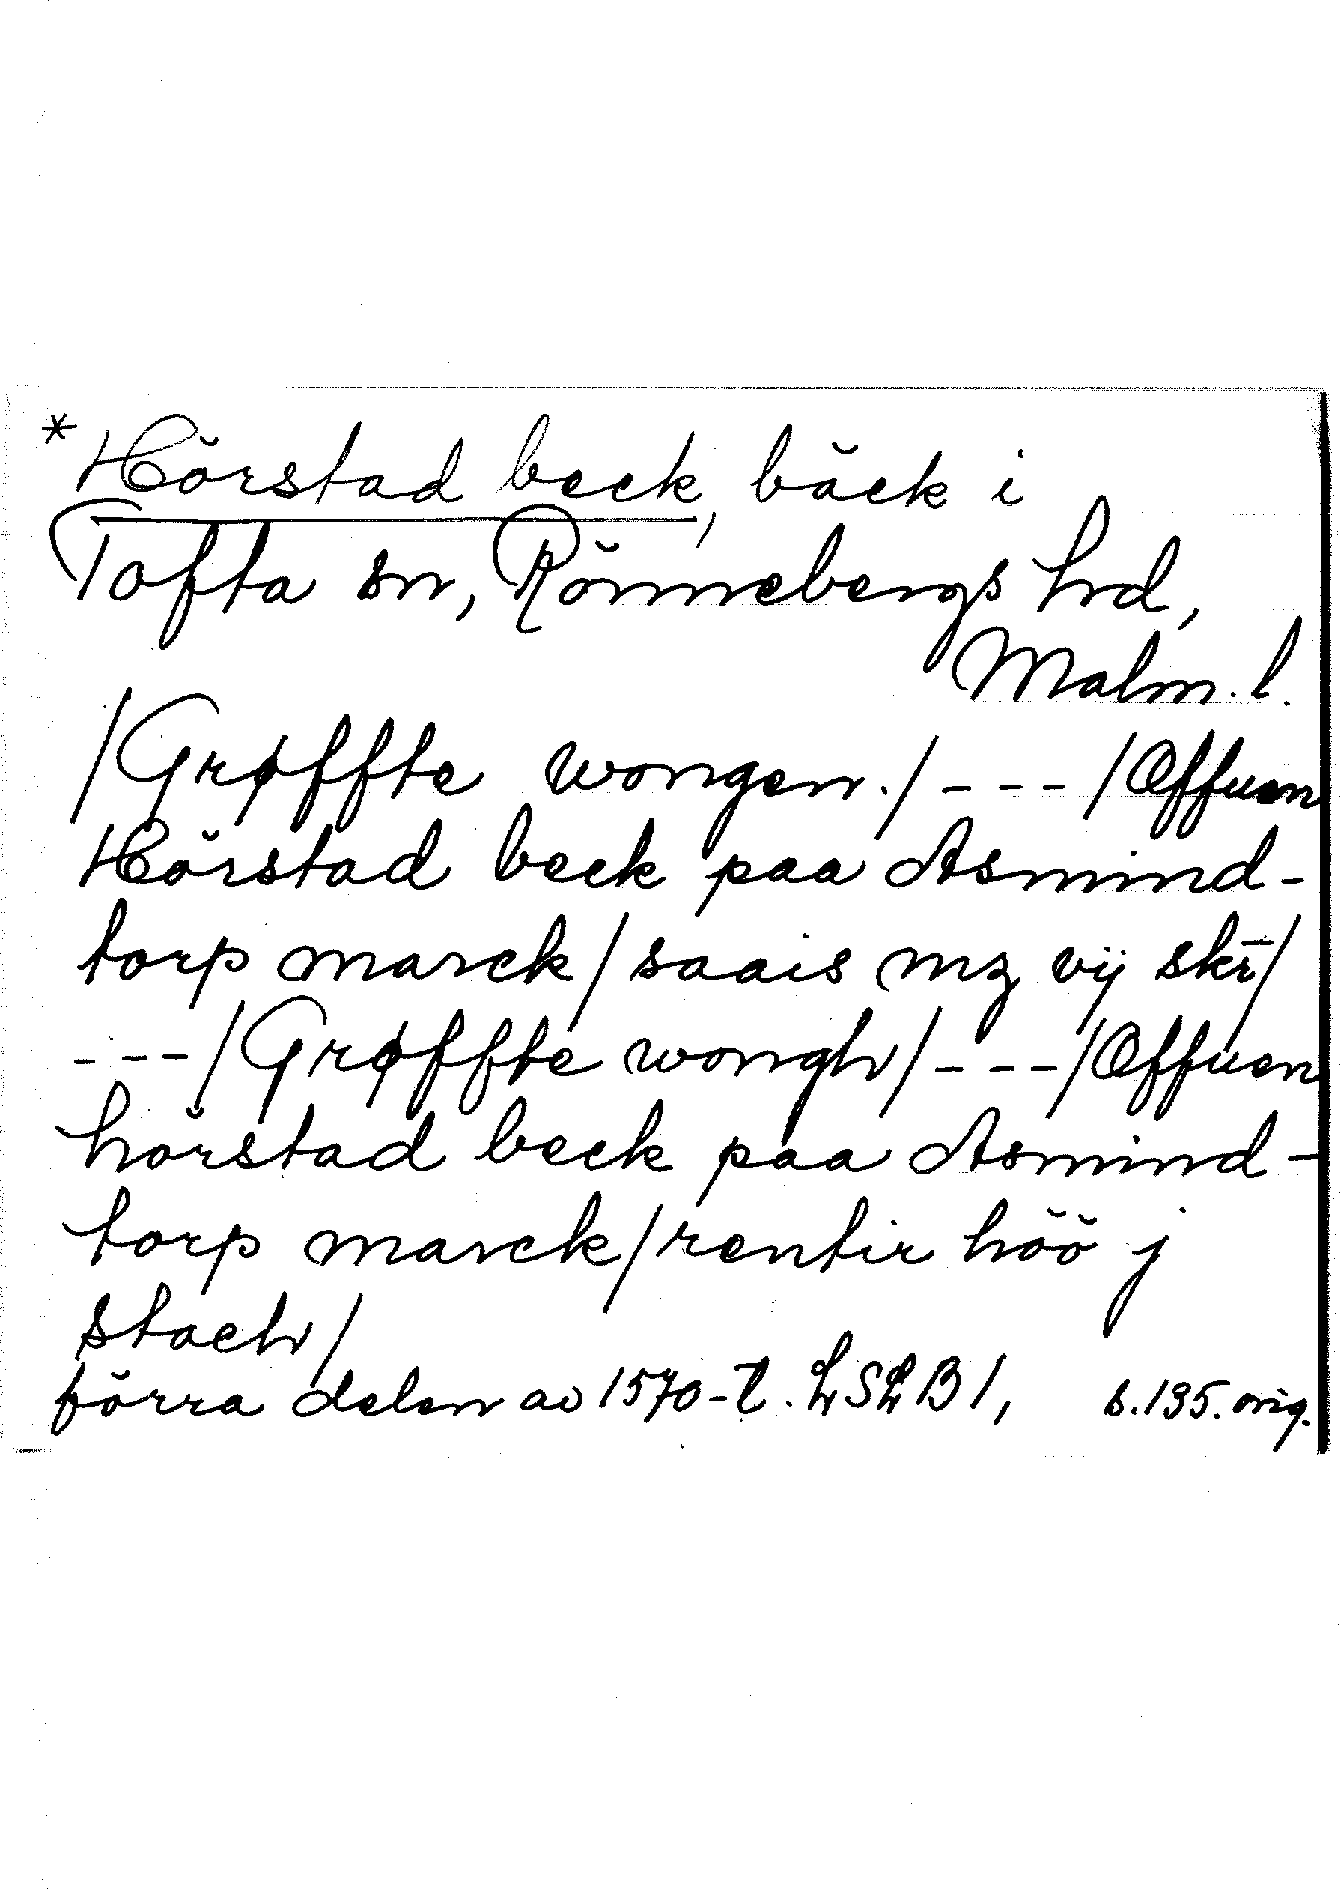 *Hörstad beck, bäck i
Tofta sn, Rönnebergs hrd,
Malm. l.
/Grøffte wongen./ - - - /Offuen
Hörstad beck paa Asmind-
torp marck/ saais mz vij skr̄/
- - - /Grøffte wongh/ - - - /Offuen
hörstad beck paa Asmind-
torp marck/ rentir höö j
stach/
förra delen av 1570-t. LSLB 1, s. 195. orig.